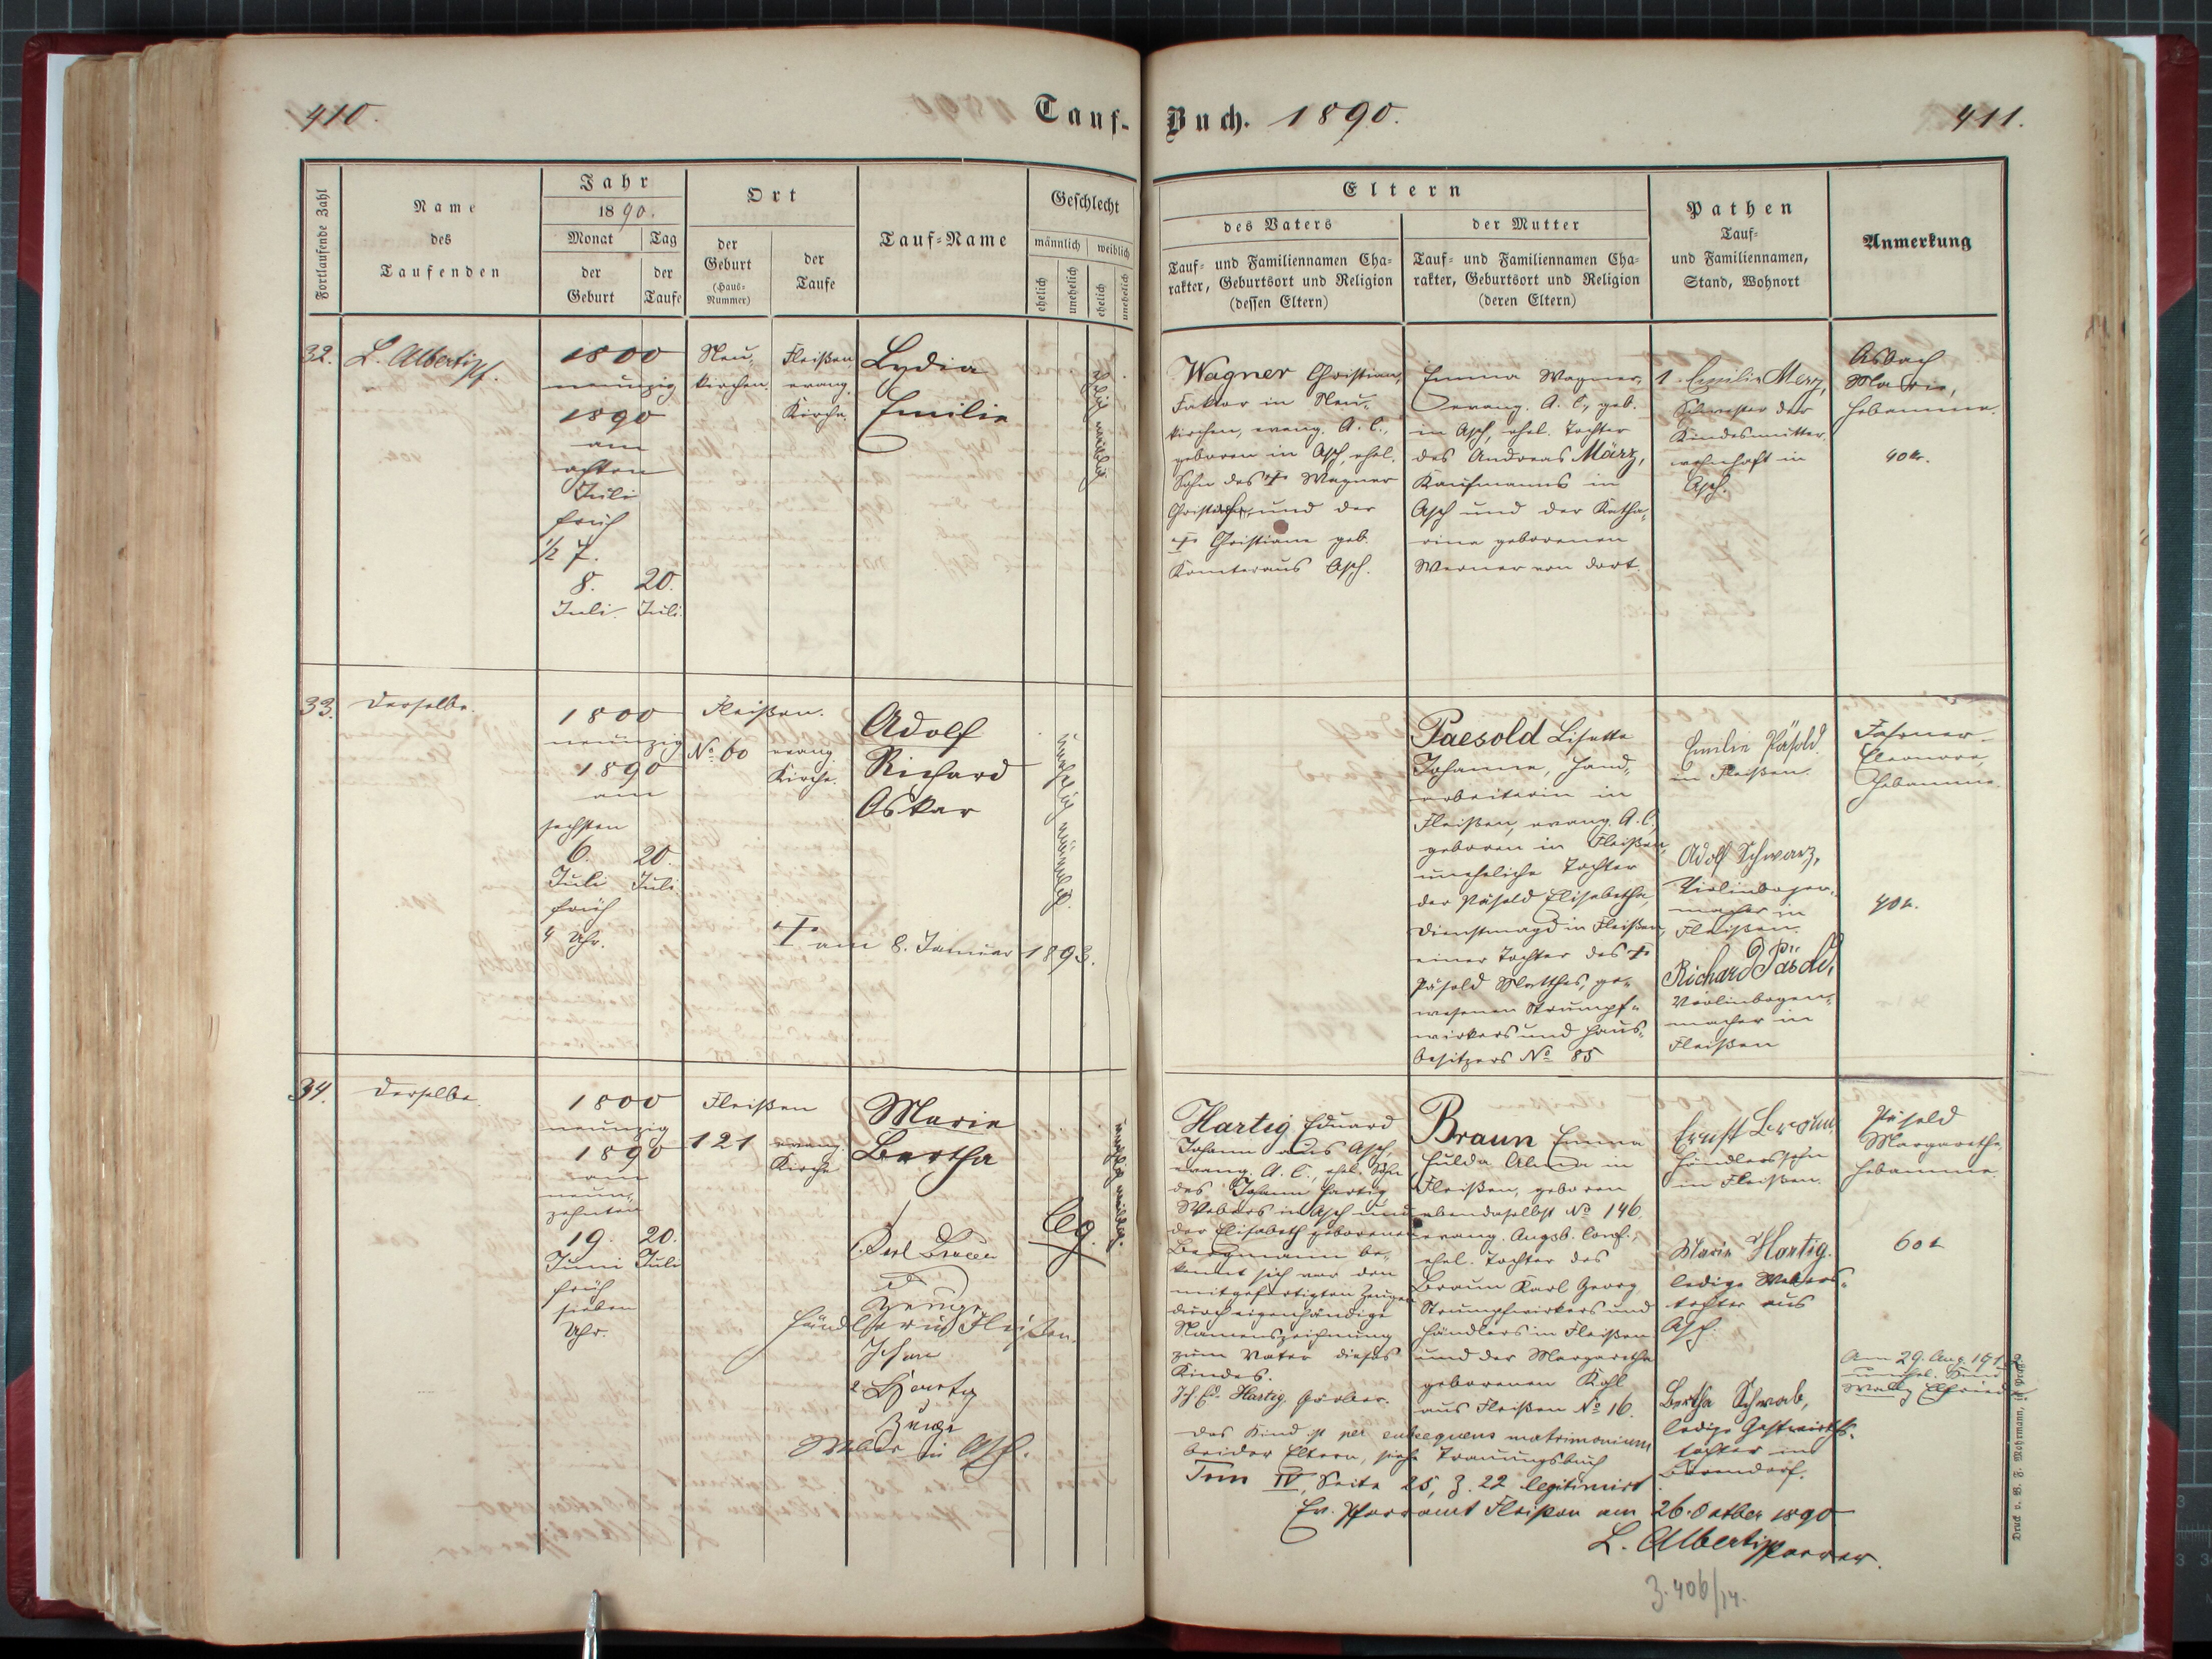 410.
Tauf-
Buch. 1890.
411.
Fortlaufende Zahl
Name
des
Taufenden
Jahr
1890.
Monat
der
Geburt
Tag
der
Taufe
Ort
der
Geburt
(Haus-
Nummer)
der
Taufe
Tauf-Name
Geschlecht
männlich
weiblich
ehelich
unehelich
ehelich
unehelich
Eltern
des Vaters
Tauf- und Familiennamen Cha-
rakter, Geburtsort und Religion
(dessen Eltern)
der Mutter
Tauf- und Familiennamen Cha-
rakter, Geburtsort und Religion
(deren Eltern)
Pathen
Tauf-
und Familiennamen,
Stand, Wohnort
Anmerkung
32.
L. Alberti Pf.
1800
neunzig
1890
am
achten
Juli
früh
1/2 7.
8.
Juli
20.
Juli.
Neu-
kirchen.
Fleißen
evang.
Kirche.
Lydia
Emilie
ehelich weiblich
Wagner Christian,
Faktor in Neu-
kirchen, evang. A. C.,
geboren in Asch, ehel.
Sohn des † Wagner
und der
† Christiane geb.
aus Asch.
Emma Wagner,
evang. A. C., geb.
in Asch, ehel. Tochter
des Andreas März,
Kaufmanns in
Asch und der Katha-
rina geborenen
Werner von dort.
1. Emilie Merz,
Schwester der
Kindesmutter,
wohnhaft in
Asch.
Asbach
Marie,
Hebamme.
40 kr.
33.
Derselbe.
1800
neunzig
1890
am
sechsten
6.
Juli
20.
Juli
früh
4 Uhr.
Fleißen.
No 60
evang.
Kirche.
Adolf
Richard
Oskar
† am 8. Januar 1893.
unehelich männlich.
Paesold Lisette
Johanne, Hand-
arbeiterin in
Fleißen, evang. A. C.,
geboren in Fleißen,
uneheliche Tochter
der Päsold Elisabetha,
Dienstmagd in Fleißen,
einer Tochter des †
Päsold Matthes, ge-
wesenen Strumpf-
wirkers und Haus-
besitzers No 85
Emilie Päsold
in Fleißen.
Adolf Schwarz,
Violinbogen-
macher in
Fleißen.
Richard Päsold,
Violinbogen-
macher in
Fleißen
Eleonore,
Hebamme.
40 k.
34.
Derselbe.
1800
neunzig
1890
am
neun-
zehnten
19.
Juni
20.
Juli
früh
sieben
Uhr.
Fleißen
121
evang.
Kirche
Marie
Bertha
leg.
unehelich weiblich.
1. Karl Braun
Zeuge
Händler in Fleißen.
Johann
2. Hartig
Zeuge
Weber in Asch.
Hartig Eduard
Johann aus Asch,
evang. A. C., ehel. Sohn
des Johann Hartig,
Webers in Asch und
der Elisabeth geborenen
Bergmann be-
kennt sich vor den
mitgefertigten Zeugen
durch eigenhändige
Namenszeichnung
zum Vater dieses
Kindes.
Joh. Ed. Hartig, Färber.
Braun Emma
Hulda Alma in
Fleißen, geboren
ebendaselbst No 146
evang. Augsb. Conf.,
ehel. Tochter des
Braun Karl Georg
Strumpfwirkers und
Händlers in Fleißen
und der Margaretha
geborenen Kohl
aus Fleißen No 16.
Ernst Braun
Händlerssohn
in Fleißen.
Marie Hartig.
ledige Webers-
tochter aus
Asch.
Bertha Schwab,
ledige Gastwirths-
tochter in
Bärendorf.
Päsold
Margaretha
Hebamme.
60 k
Am 29. Aug.
Wally Elfriede
Das Kind ist per subsequens matrimonium
beider Eltern, siehe Trauungsbuch
Tom IV, Seite 25, Z. 22 legitimirt
Ev. Pfarramt Fleißen am 26. October 1890
L. Alberti Pfarrer.
Z. 406/14.